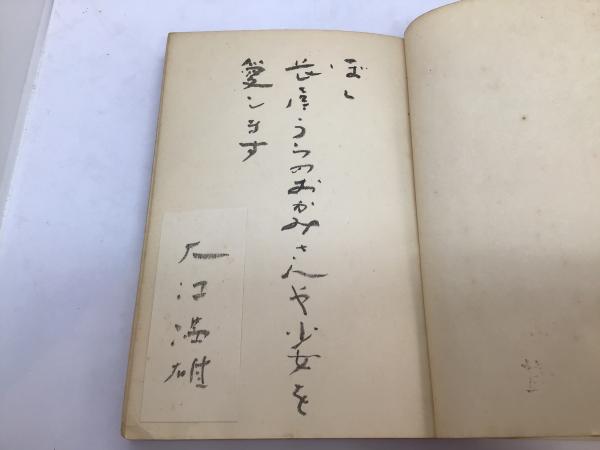 ぼく
長屋うらのおかみさんや少女を
愛します
大江満雄